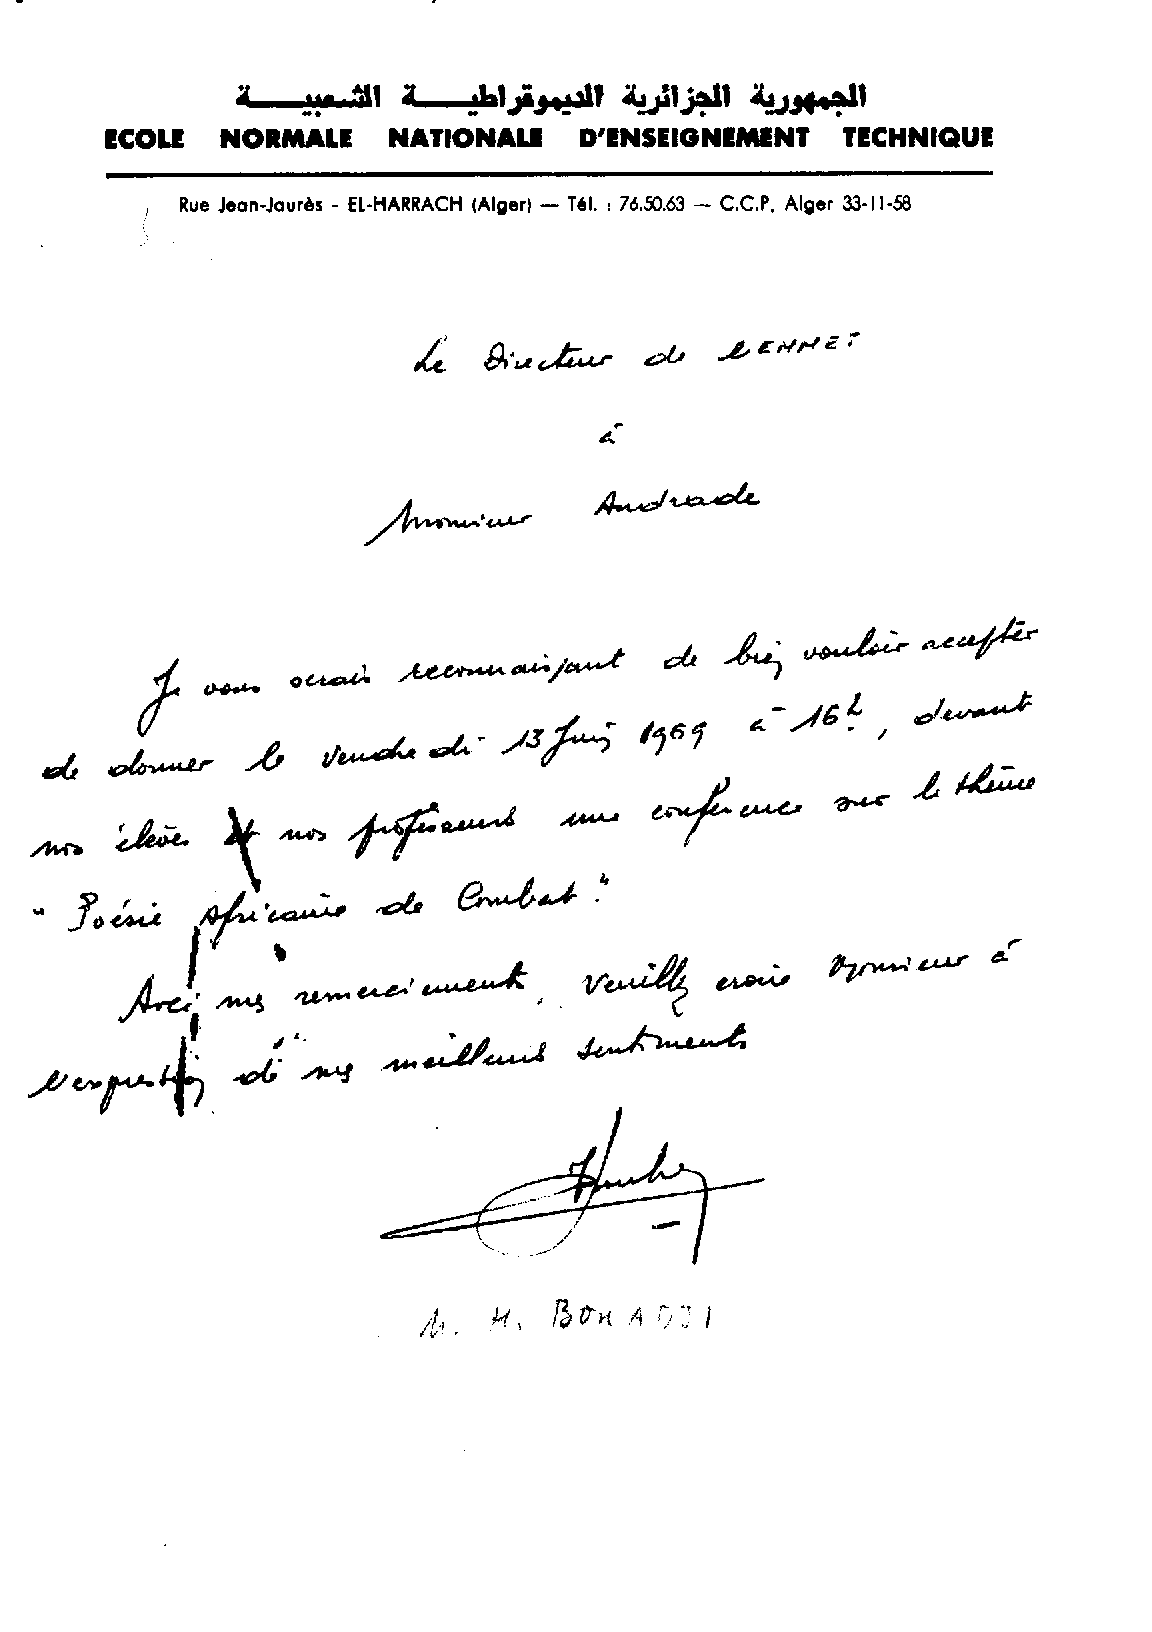 الجمهورية الجزائرية الديموقراطيـــة الشـعبيـــة
ECOLE NORMALE NATIONALE D'ENSEIGNEMENT TECHNIQUE
Rue Jean-Jaurès - EL-HARRACH (Alger) — Tél. : 76.50.63 — C.C.P. Alger 33-11-58
Le Directeur de l'ENNET
à
Monsieur Andrade
Je vous serais reconnaissant de bien vouloir accepter
de donner le Vendredi 13 Juin 1969 à 16h, devant
nos élèves et nos professeurs une conférence sur le thème
"Poésie Africaine de Combat."
Avec mes remerciements, Veuillez croire Monsieur à
l'expression de mes meilleurs sentiments
M. H. BOHADJI